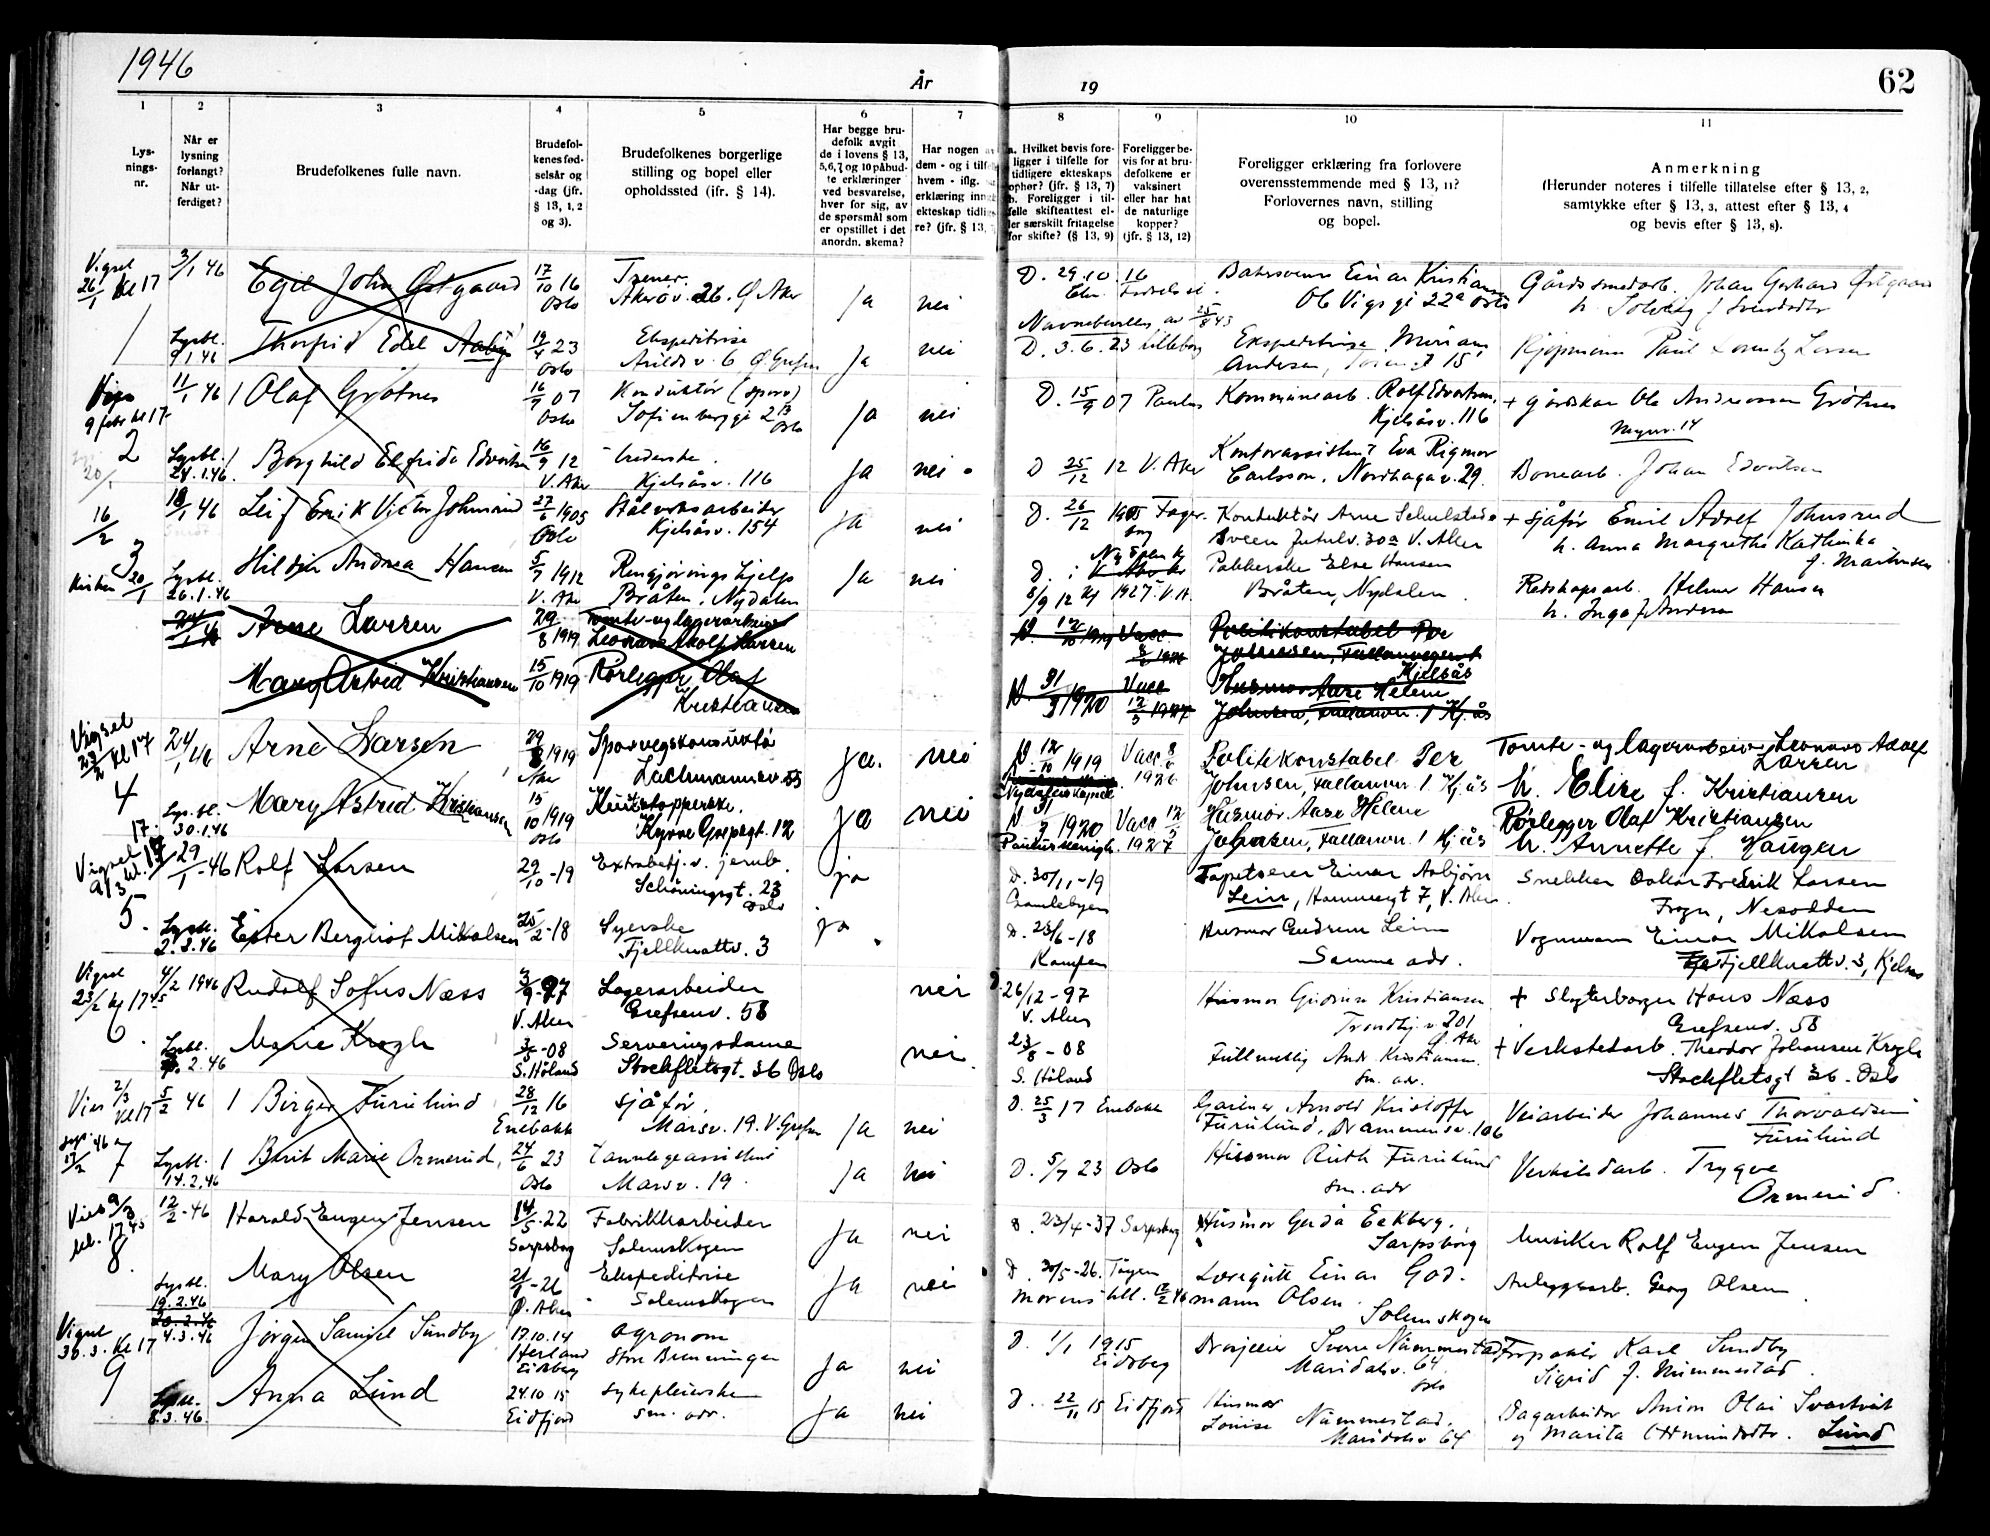 1946
År
19
62
1
2
3
4
5
6
7
8
9
10
11
Lys-
nings-
nr.
Når er
lysning
forlangt?
Når ut-
ferdiget?
Brudefolkenes fulle navn.
Brudefol-
kenes fød-
selsår og
-dag (jfr.
§ 13, 1, 2
og 3).
Brudefolkenes borgerlige
stilling og bopel eller
opholdssted (jfr. § 14).
Har begge bru-
defolk avgit
de i lovens § 13,
5,6,7 og 10 påbud-
te erklæringer
ved besvarelse,
hver for sig, av
de spørsmål som
er opstillet i det
anordn. skema?
Har nogen
dem - og i
hvem - iflg.
erklæring
ekteskap
re? (jfr. § 13,
a. Hvilket bevis fore-
ligger i tilfelle for
tidligere ekteskaps
ophør? (jfr. § 13, 7)
b. Foreligger i til-
felle skifteattest el-
ler særskilt fritagelse
for skifte? (§ 13, 9)
Foreligger be-
vis for at bru-
defolkene er
vaksinert
eller har hat
de naturlige
kopper?
(jfr. § 13, 12)
Foreligger erklæring fra forlovere
overensstemmende med § 13, 11?
Forlovernes navn, stilling
og bopel.
Anmerkning
(Herunder noteres i tilfelle tillatelse efter § 13, 2,
samtykke efter § 13, 3, attest efter § 13, 4
og bevis efter § 13, 8).
Vigsel
26/1 kl 17
3/1 46
Egil John Østgaard
17/10 16
Oslo
Trener
Akersv. 26. Ø Aker
Ja
nei
D. 29.10.16
Einar Kristiansen
Ole Vigs gt 22a Oslo
Johan Gerhard Østgaard
1
Lysbl.
9.1.46
Thorfrid Edel Aaby
19/4 23
Oslo
Ekspeditrise
Arildsv. 6 Ø. Grefsen
Ja
nei
D. 3.6.23 Lilleborg
Ekspeditrise Miriam
Andersen,
Kjøpmann Paul Lorentz Larsen
9 febr kl 17
2
11/1 46
Olaf Grøtnes
16/9 07
Oslo
Konduktør (sporv)
Sofienberggt 2 B
Oslo
Ja
nei
D. 15/9 07 Paulus
Kommunearb. Rolf Edvartsen,
Kjelsåsv. 116
+ gårdskar Ole Andreassen Grøtnes
20/1
Lysbl.
24.1.46
Borghild Elfrida Edvartsen
16/9 12
V. Aker
Kjelsåsv. 116
Ja
nei
D 25/12 12 V. Aker
Kontorassistent Eva Rigmor
Carlsson, Nordhagav. 29.
Johan Edvartsen
16/2
3
18/1 46
Leif Erik Victor Johnsrud
27/6 1905
Oslo
Stålverksarbeider
Kjelsåsv. 154
Ja
nei
D. 26/12 1905 Fager-
borg
Konduktør Arne Schulstad
Sveen Jutulv. 30a V. Aker
+ sjåfør Emil Adolf Johnsrud
h. Anna Margrethe Kathinka
f. Martinsen
20/1
Lysbl.
26.1.46
Hildur Andrea Hansen
5/7 1912
V. Aker
Rengjøringshjelp
Bråten, Nydalen
Ja
nei
8/9 12
1927 V.A.
Pakkerske Else Hansen
Bråten, Nydalen.
Redskapsarb. Helmer Hansen
h. Inga f. Andersen
24/1 46
Arne Larsen
29/8 1919
Tomte- og lagerarbeider
Leonard Adolf Larsen
Vacc.
Politikonstabel Per
Johnsen, Fallanveien 1
Kjelsås
Mary Astrid Kristiansen
15/10 1919
Rørlegger Olaf
Kristiansen
31/3 1920
Vacc
12/5 1927
Husmor Aase Helene
Johnsen, Fallanvn. 1 Kj.ås
Vigsel
23/2 kl 17
4
24/1 46
Arne Larsen
29/8 1919
Aker
Sporvegskonduktør
Lachmannsv. 55
Ja.
nei
D 12/10 1919
Nydalens kapell
Vacc 8/6
1926
Politikonstabel Per
Johnsen, Fallanvn. 1 Kj.ås
Tomte- og lagerarbeider Leonard Adolf
Larsen
h. Elise f. Kristiansen
Lys. bl.
30.1.46
Mary Astrid Kristiansen
15/10 1919
Oslo
Kunststopperske,
Ja
nei
D 31/3 1920
Paulus menigh.
Vacc 12/5
1927
Husmor Aase Helene
Johnsen, Fallanvn. 1 Kj.ås
Rørlegger Olaf Kristiansen
h. Annette f. Haugen
Vigsel
9/3 kl. 17
5.
29/1-46
Rolf Larsen
29/10-19
Extrabetj. v. jernb.
Schøningsgt. 23
Oslo
ja
D. 30/11-19
Gamlebyen
Tapetserer Einar Asbjørn
Leira, Hammersgt 7, V. Aker
Snekker Oskar Fredrik Larsen
Frogn, Nesodden
Lysbl.
2.3.46
Ester Bergliot Mikalsen
25/2-18
Syerske
Fjellknattv. 3
ja
D. 23/6-18
Kampen
Husmor Gudrun Leira
Samme adr.
Vognmann Einar Mikalsen
Fjellknattv. 3, Kjelsås
Vigsel
23/2 kl 17 45
6.
4/2 1946
Rudolf Sofus Næss
3/9-97
V. Aker
Lagerarbeider
Grefsenv. 58
nei
26/12-97
V. Aker
Husmor Gudrun Kristiansen
Trondhj.v 201
Ø. Aker
+ Slakterborger Hans Næss
Grefsenv. 58
Lysbl.
2.46
Marie Krogh
3/5-08
S. Høland
Serveringsdame
Stockfletsgt. 36 Oslo
nei
23/8-08
S. Høland
Fullmektig Andr. Kristiansen.
sm. adr.
+ Verkstedarb. Theodor Johansen Krogh
Stockfletsgt 36 - Oslo
Vies 2/3
kl 17
7
5/2 46
Birger Furulund
28/12 16
Enebakk
sjåfør,
Marsv. 19. V Grefsen
Ja
nei
D. 25/3 17 Enebakk
Gartner Arnold Kristoffer
Furulund, Drammensv. 106
Veiarbeider Johannes Thorvaldsen
Furulund
17/2
Lysbl.
14.2.46
Berit Marie Ormerud,
24/6 23
Oslo
Tannlegeassistent
Marsv. 19.
Ja
nei
D. 5/7 23 Oslo
Husmor Ruth Furulund
sm. adr
Verkstedarb. Trygve
Ormerud.
Vies 9/3
kl. 17 45
8
12/2-46
Harald Eugen Jensen
14/5-22
Sarpsborg
Fabrikkarbeider
Solemskogen
Ja
nei
D. 23/4-37 Sarpsborg
Husmor Gerda Eekberg.
Sarpsborg
Musiker Rolf Eugen Jensen
Lysbl.
19.2.46
Mary Olsen
Ø. Aker
Ekspeditrise
Solemskogen
Ja
nei
D. 30/5-26. Tøyen
Einar God-
mann Olsen.
Solemskogen
Anleggsarb. Georg Olsen
Vigsel
30.3. kl 17
9
20.2.46
4.3.46
Jørgen Samuel Sundby
17.10.14
Herland
Eidsberg
agronom
Store Brenningen
Ja
nei
D. 1/1 1915
Eidsberg
Drosjeeier Sverre Nummestad
Maridalsv. 64
Oslo
Forpakter Karl Sundby
Sigrid f. Nummestad.
Lysbl.
8.3.46
Anna Lund
24.10 15
Eidfjord
sykepleierske
sm. adr.
Ja
nei
D. 22/11 15 Eidfjord
Husmor
Louise Nummestad.
Maridalsv 64
Dagarbeider Anton Olai Svartveit
og Marita Ommundsdtr. Lund